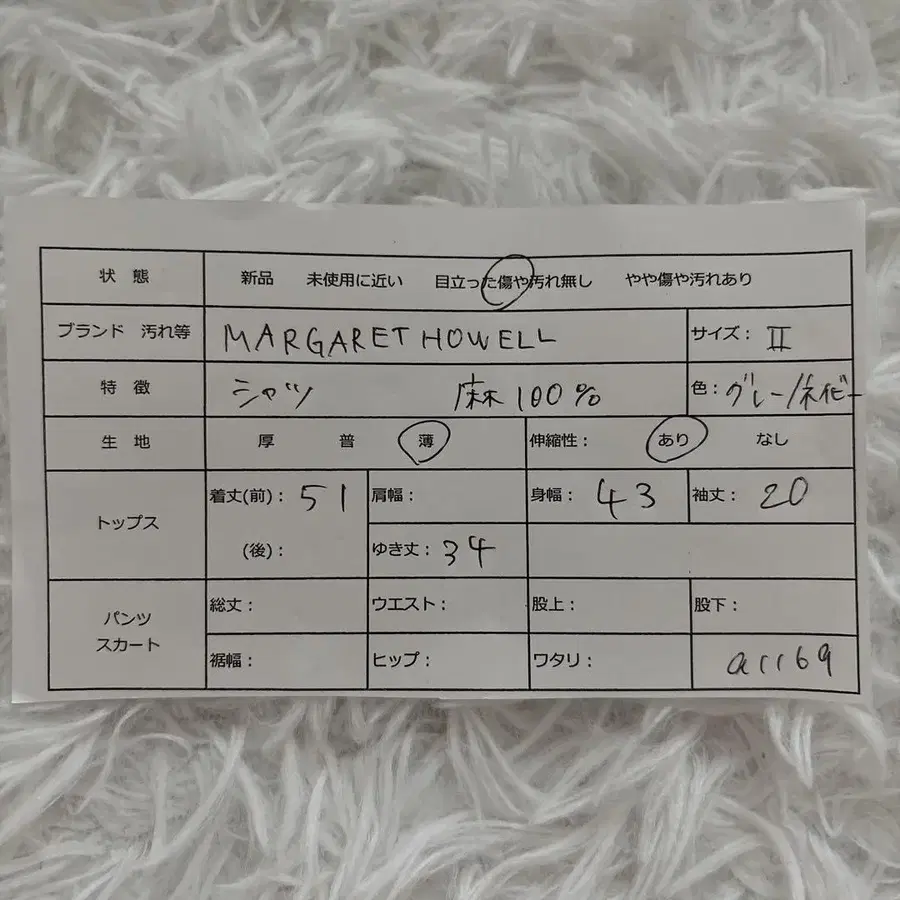 状 態 新品 未使用に近い 目立った傷や汚れ無し やや傷や汚れあり
ブランド 汚れ等 MARGARET HOWELL サイズ： II
特 徴 シャツ 麻 100% 色：グレー/ネイビー
生 地 厚 普 薄 伸縮性： あり なし
トップス 着丈(前)： 51 肩幅： 身幅： 43 袖丈： 20
(後)： ゆき丈： 34
パンツ スカート 総丈： ウエスト： 股上： 股下：
裾幅： ヒップ： ワタリ： a1169